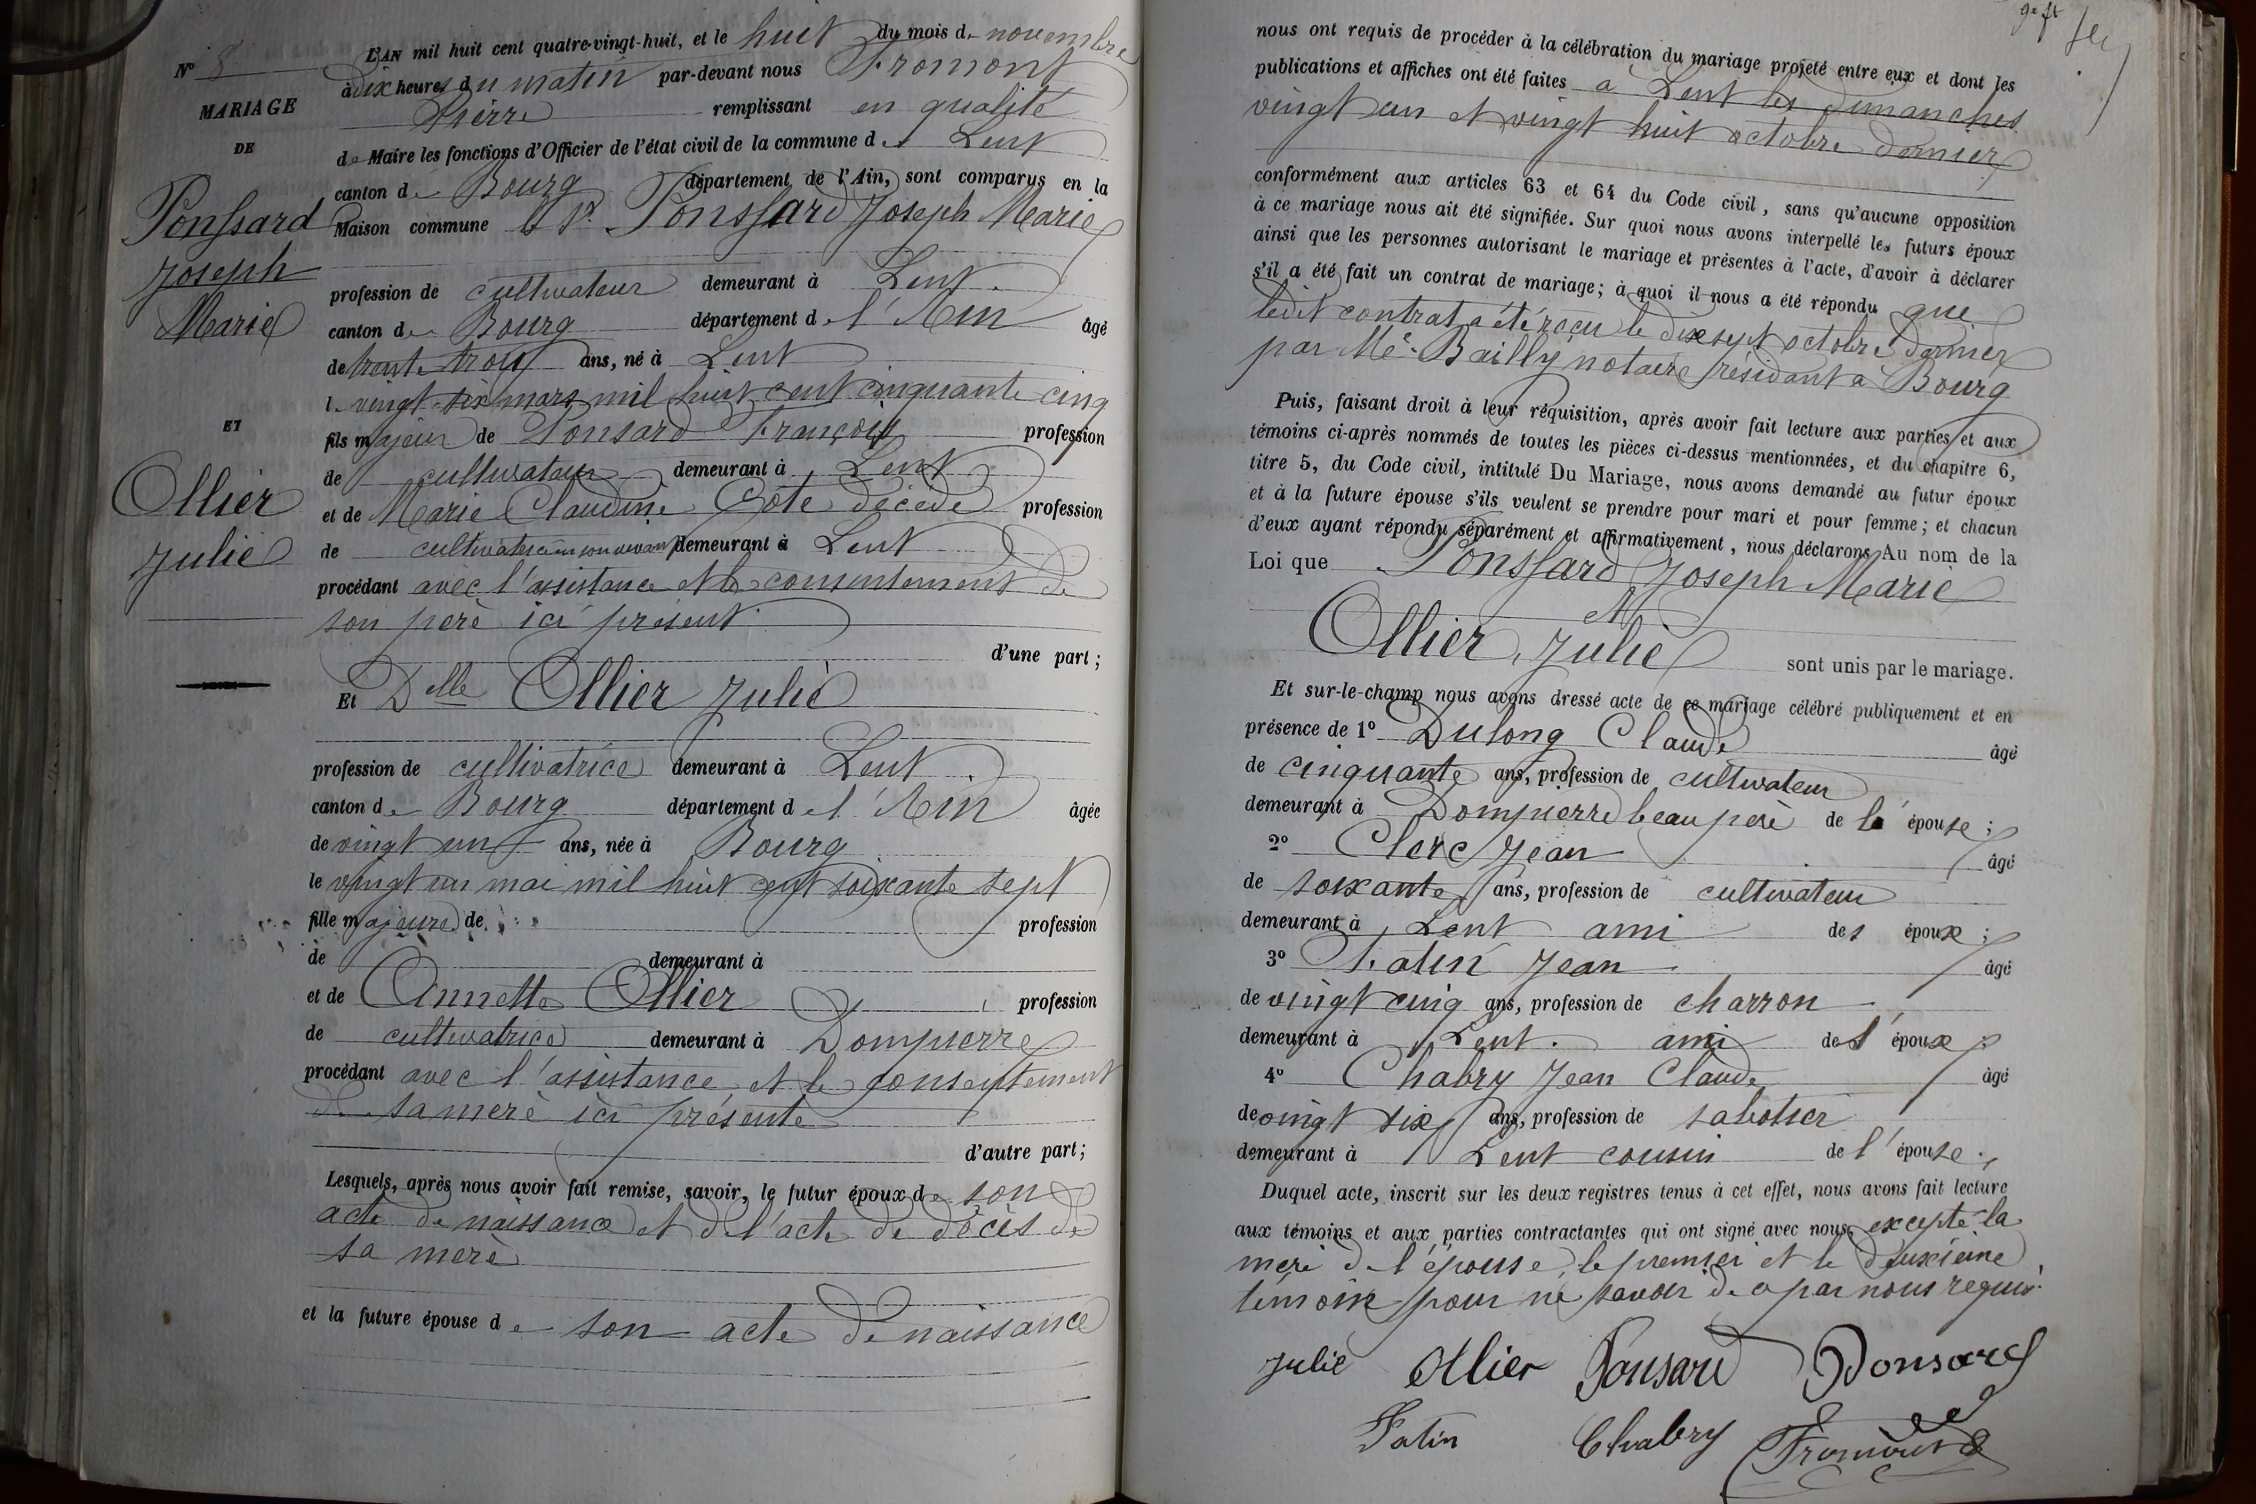 L'AN mil huit cent quatre-vingt-huit, et le huit du mois de novembre
N° 8
à dix heures du matin par-devant nous Fromont
MARIAGE
Pierre remplissant en qualité
DE
de Maire les fonctions d'Officier de l'état civil de la commune de Lent
canton de Bourg département de l'Ain, sont comparus en la
Ponssard
Joseph
Marie
Maison commune Sr Ponssard Joseph Marie
profession de cultivateur demeurant à Lent
canton de Bourg département de l'Ain âgé
de trente trois ans, né à Lent
le vingt six mars mil huit cent cinquante cinq
ET
fils majeur de Ponsard François profession
de cultivateur demeurant à Lent
Ollier
Julie
et de Marie Claudine Côte décédé profession
de cultivatrice en son vivant demeurant à Lent
procédant avec l'assistance et le consentement de
son père ici présent
d'une part ;
Et Delle Ollier Julie
profession de cultivatrice demeurant à Lent
canton de Bourg département de l'Ain âgée
de vingt un ans, née à Bourg
le vingt un mai mil huit cent soixante sept
fille majeure de profession
de demeurant à
et de Annette Ollier profession
de cultivatrice demeurant à Dompierre
procédant avec l'assistance et le consentement
de sa mère ici présente
d'autre part ;
Lesquels, après nous avoir fait remise, savoir, le futur époux de son
acte de naissance et de l'acte de décès de
sa mère
et la future épouse de son acte de naissance
nous ont requis de procéder à la célébration du mariage projeté entre eux et dont les
publications et affiches ont été faites a Lent les dimanches
vingt un et vingt huit octobre dernier
conformément aux articles 63 et 64 du Code civil, sans qu'aucune opposition
à ce mariage nous ait été signifiée. Sur quoi nous avons interpellé les futurs époux
ainsi que les personnes autorisant le mariage et présentes à l'acte, d'avoir à déclarer
s'il a été fait un contrat de mariage ; à quoi il nous a été répondu que
ledit contrat a été reçu le dix sept octobre dernier
par Me Bailly notaire résidant à Bourg
Puis, faisant droit à leur réquisition, après avoir fait lecture aux parties et aux
témoins ci-après nommés de toutes les pièces ci-dessus mentionnées, et du chapitre 6,
titre 5, du Code civil, intitulé Du Mariage, nous avons demandé au futur époux
et à la future épouse s'ils veulent se prendre pour mari et pour femme ; et chacun
d'eux ayant répondu séparément et affirmativement, nous déclarons Au nom de la
Loi que Ponssard Joseph Marie
et
Ollier Julie sont unis par le mariage.
Et sur-le-champ nous avons dressé acte de ce mariage célébré publiquement et en
présence de 1° Dulong Claude âgé
de cinquante ans, profession de cultivateur
demeurant à Dompierre beau père de l' épouse ;
2° Clerc Jean âgé
de soixante ans, profession de cultivateur
demeurant à Lent ami des époux ;
3° Fatin Jean âgé
de vingt cinq ans, profession de charron
demeurant à Lent. ami de l' époux ;
4° Chabry Jean Claude âgé
de vingt six ans, profession de sabotier
demeurant à Lent cousin de l'épouse.
Duquel acte, inscrit sur les deux registres tenus à cet effet, nous avons fait lecture
aux témoins et aux parties contractantes qui ont signé avec nous excepté la
mère de l'épouse, le premier et le deuxième
témoin pour ne savoir de ce par nous requis.
Julie Ollier Ponsard Ponsard
Fatin Chabry Fromont